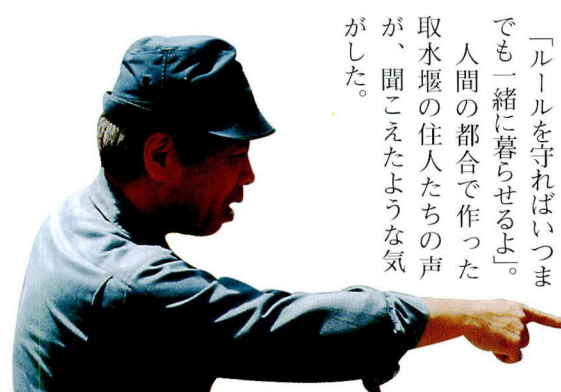 「ルールを守ればいつま
でも一緒に暮らせるよ」。
　人間の都合で作った
取水堰の住人たちの声
が、聞こえたような気
がした。